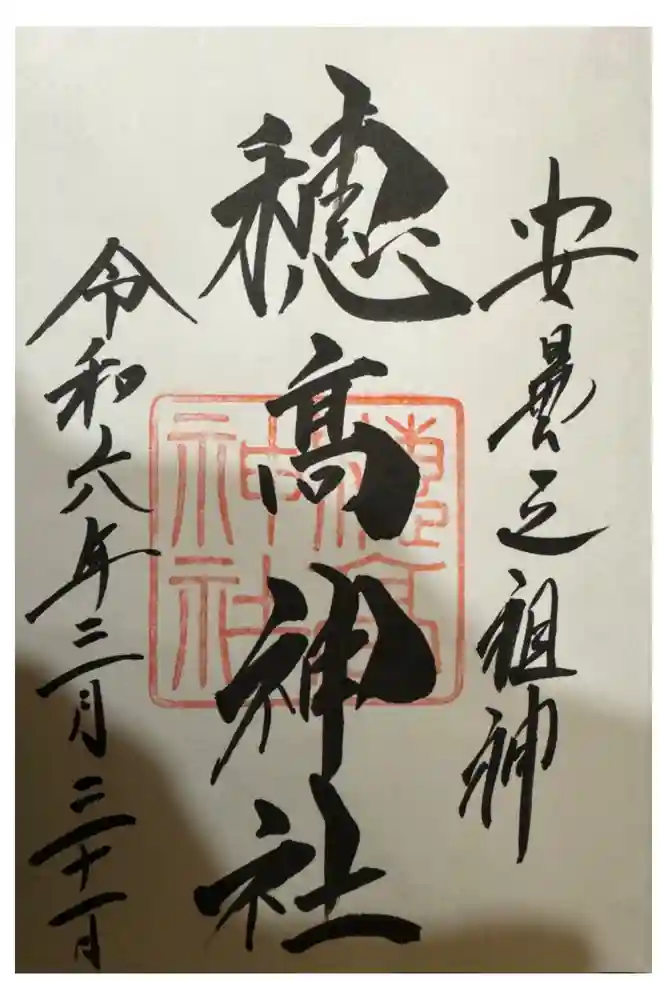 安曇之祖神
穂髙神社
令和六年三月三十一日
穗高
神社